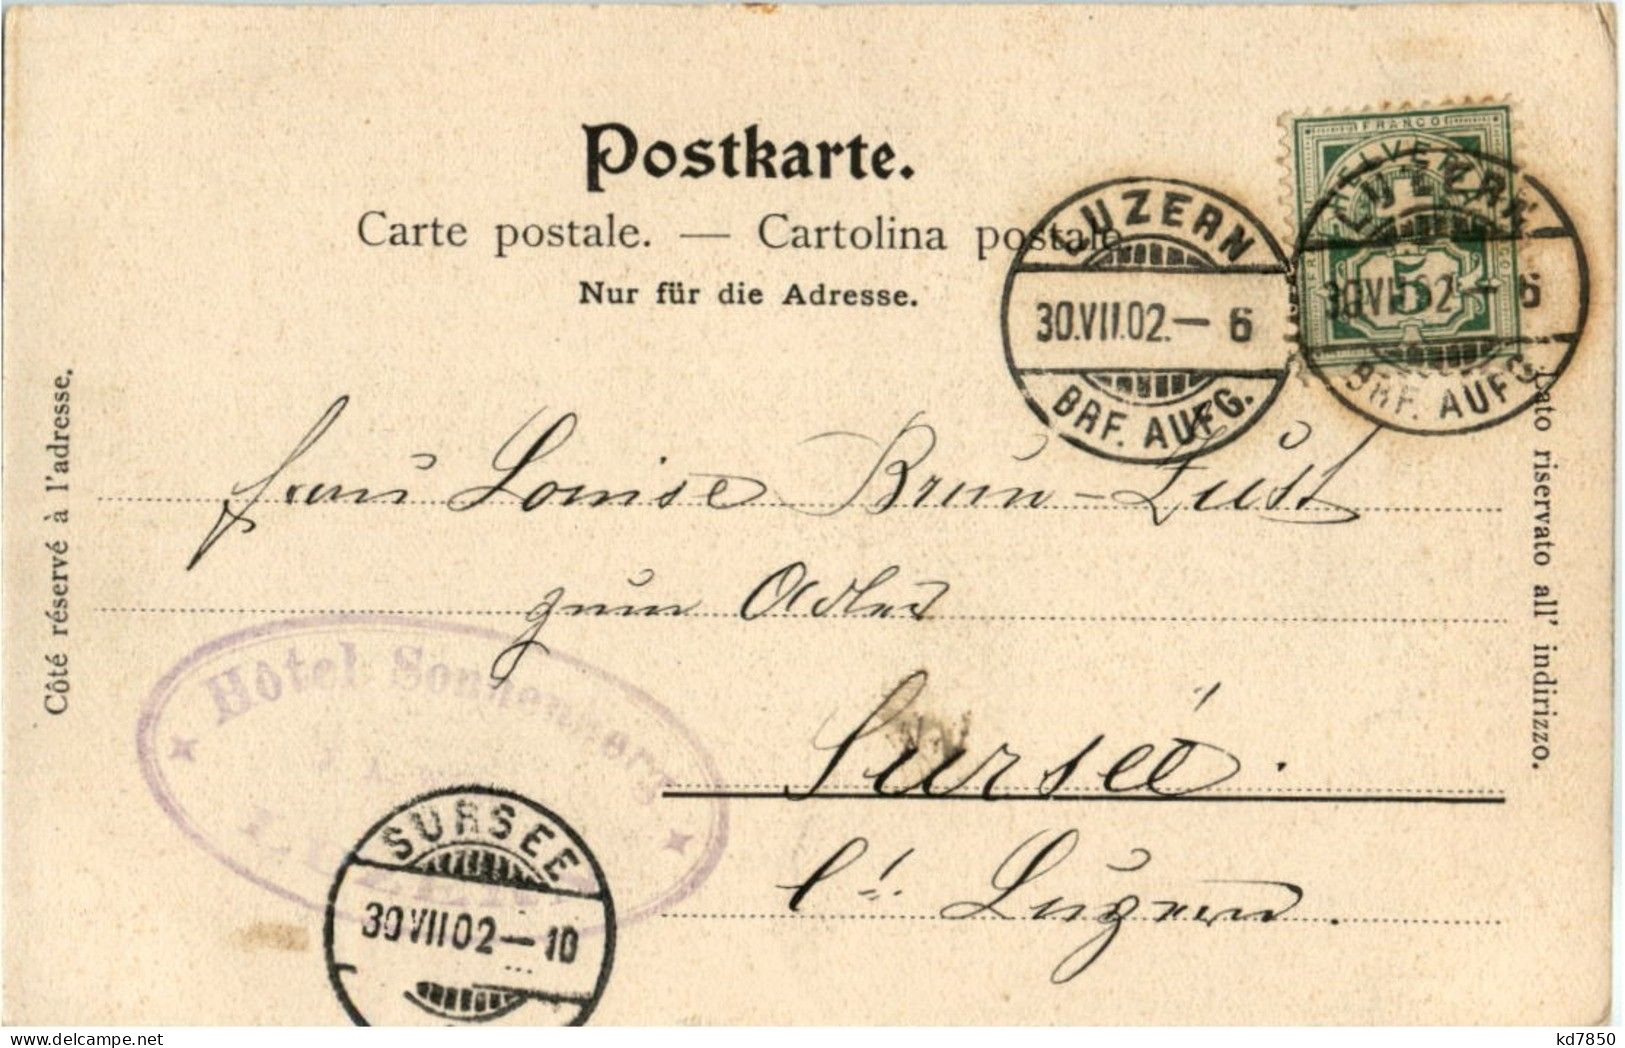 Postkarte.
Carte postale. — Cartolina postale.
Nur für die Adresse.
FRANCO
HELVETIA
5
LUZERN
30.VII.02.— 6
BRF. AUFG.
LUZERN
30.VII.02 — 6
BRF. AUFG.
Côté réservé à l'adresse.
Lato riservato all' indirizzo.
Frau Louise Brun-Züst
zum Adler
Sursee.
Ct. Luzern.
Hôtel Sonnenberg
LUZERN
SURSEE
30VII02—10
delcampe.net
kd7850